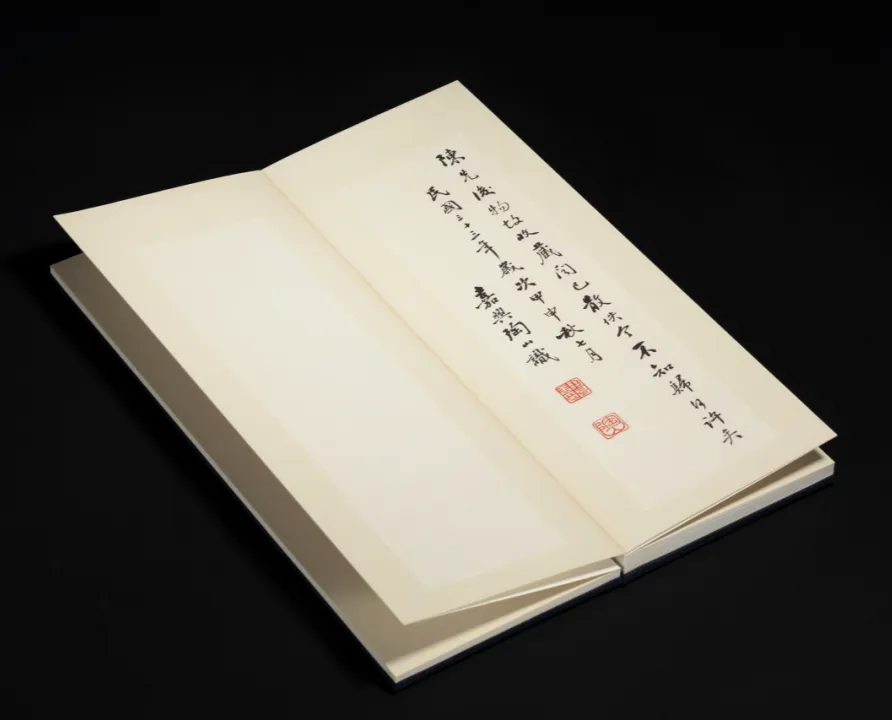 陳先後物故收藏聞已散佚今不知歸何許矣
民國三十三年歲次甲申秋七月
嘉興陶山識